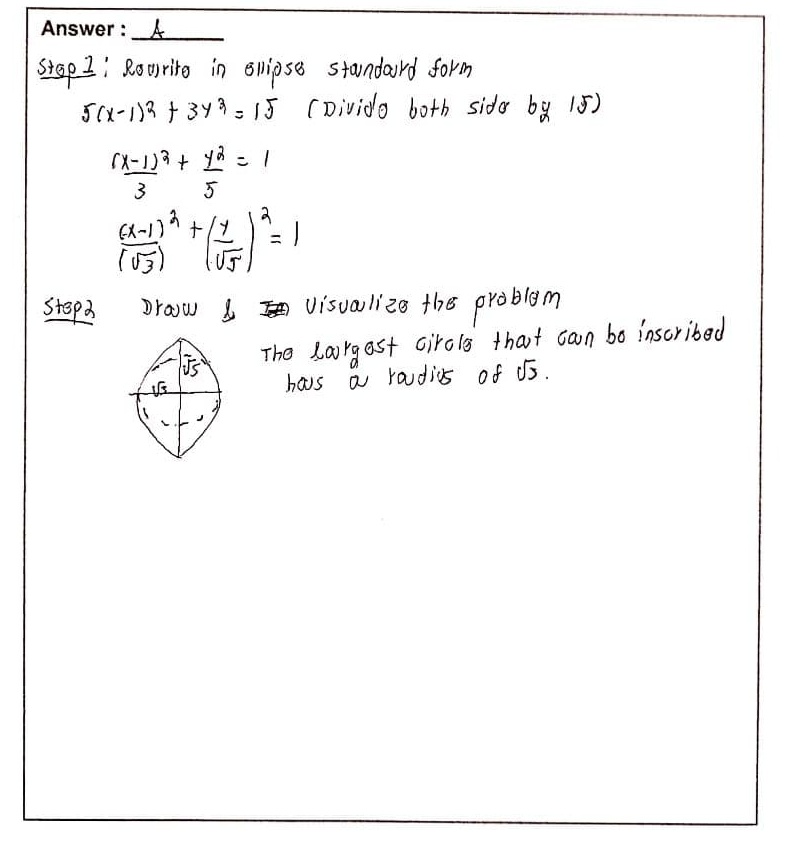 Answer : A
Step 1 : Rewrite in ellipse standard form
5(x-1)² + 3y² = 15 (Divide both side by 15)
(x-1)²/3 + y²/5 = 1
(x-1)²/(√3) + (y/√5)² = 1
Step 2 Draw & Visualize the problem
The largest circle that can be inscribed
has a radius of √3.
√5
√3